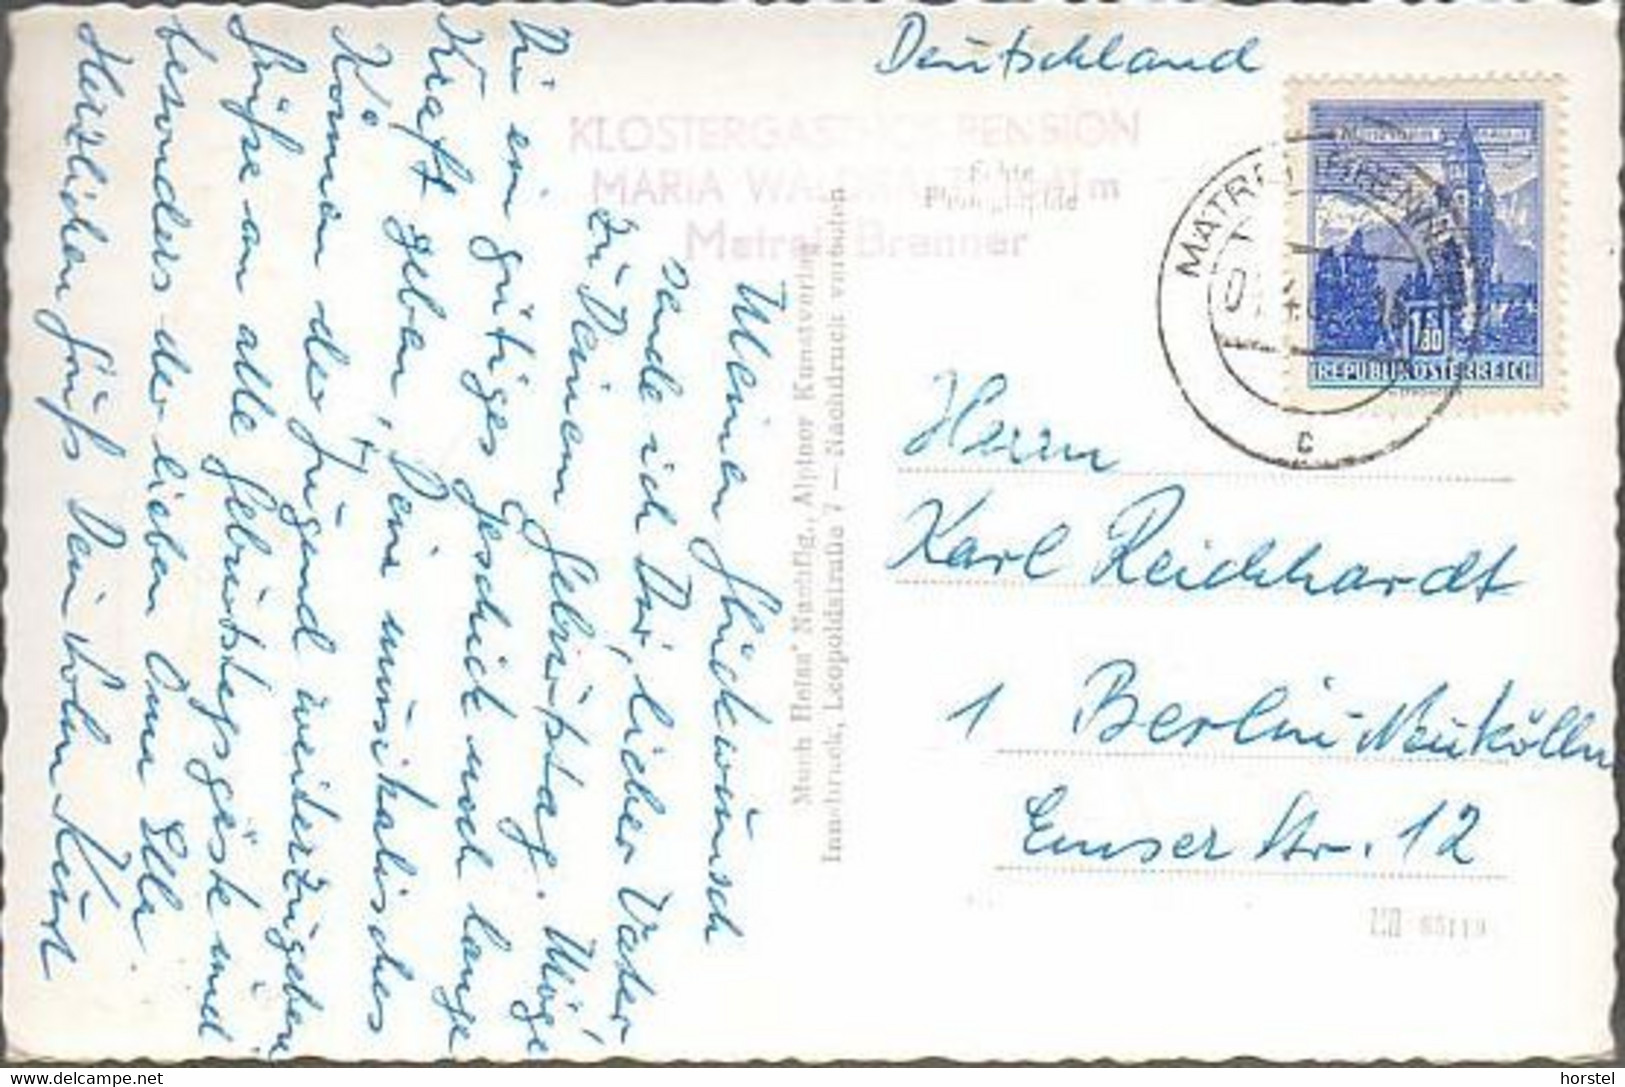 Meinen Glückwunsch
sende ich Dir, lieber Vater
zu Deinem Geburtstag. Möge
Dir ein gütiges Geschick noch lange
Kraft geben, Dein musikalisches
Können der Jugend weiterzugeben
Grüße an alle Geburtstagsgäste und
besonders der lieben Oma Ella.
Herzlichen Gruß Dein Sohn Kurt
Deutschland
KLOSTERGASTHOF-PENSION
MARIA WALDRAST m
Matrei Brenner
Echte
Photographie
Much Heiss' Nachflg., Alpiner Kunstverlag
Innsbruck, Leopoldstraße 7 — Nachdruck verboten
MATREI BRENNER
c
1.80
REPUBLIK ÖSTERREICH
Herrn
Karl Reichhardt
1 Berlin-Neukölln
Emser Str. 12
65119
horstel
www.delcampe.net